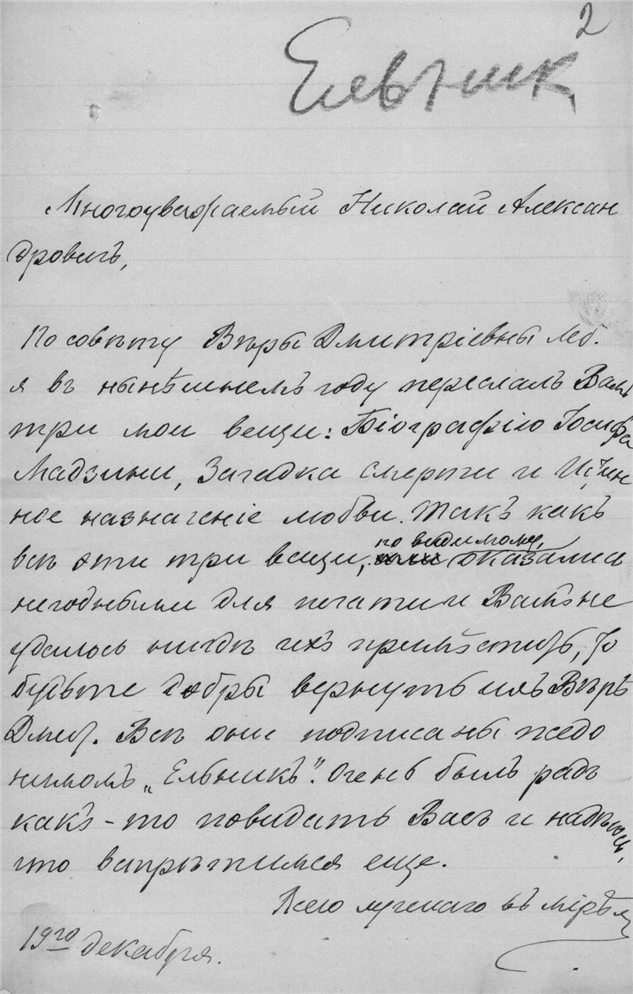 2
Ельникъ
Многоуважаемый Николай Алексан
дровичъ,
По совѣту Вѣры Дмитріевны Леб.
я въ нынѣшнемъ году переслалъ Вамъ
три мои вещи: Біографію Іосифа
Мадзини, Загадка смерти и Ис
ное назначеніе любви. Такъ какъ
всѣ эти три вещи, по видимому, оказались
негодными для печати и Вамъ не
удалось нигдѣ ихъ примѣстить, то
будьте добры вернуть ихъ Вѣрѣ
Дмит. Всѣ они подписаны псевдо
нимомъ „Ельникъ". Очень былъ радъ
какъ-то повидать Васъ и надѣюсь,
что встрѣтимся еще.
Всего лучшаго въ мірѣ
19го декабря.